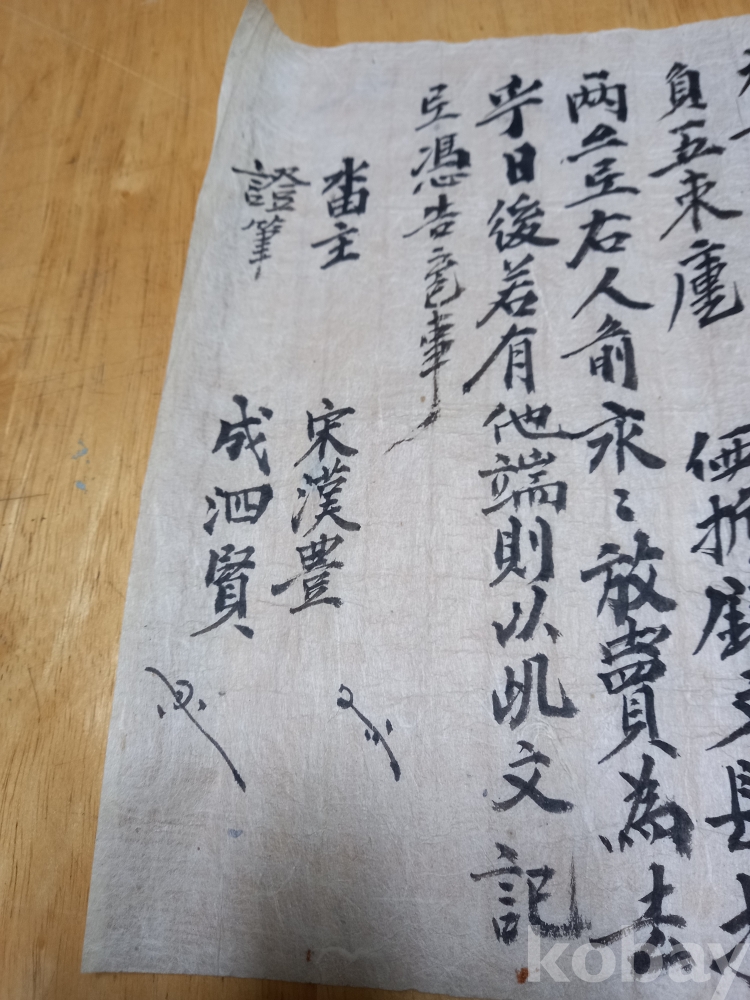 負五束 価折
兩 右人前永〻放賣為去
乎日後若有他端則以此文記
憑告官事
畓主 宋漢豊
證筆 成泗賢
kobay